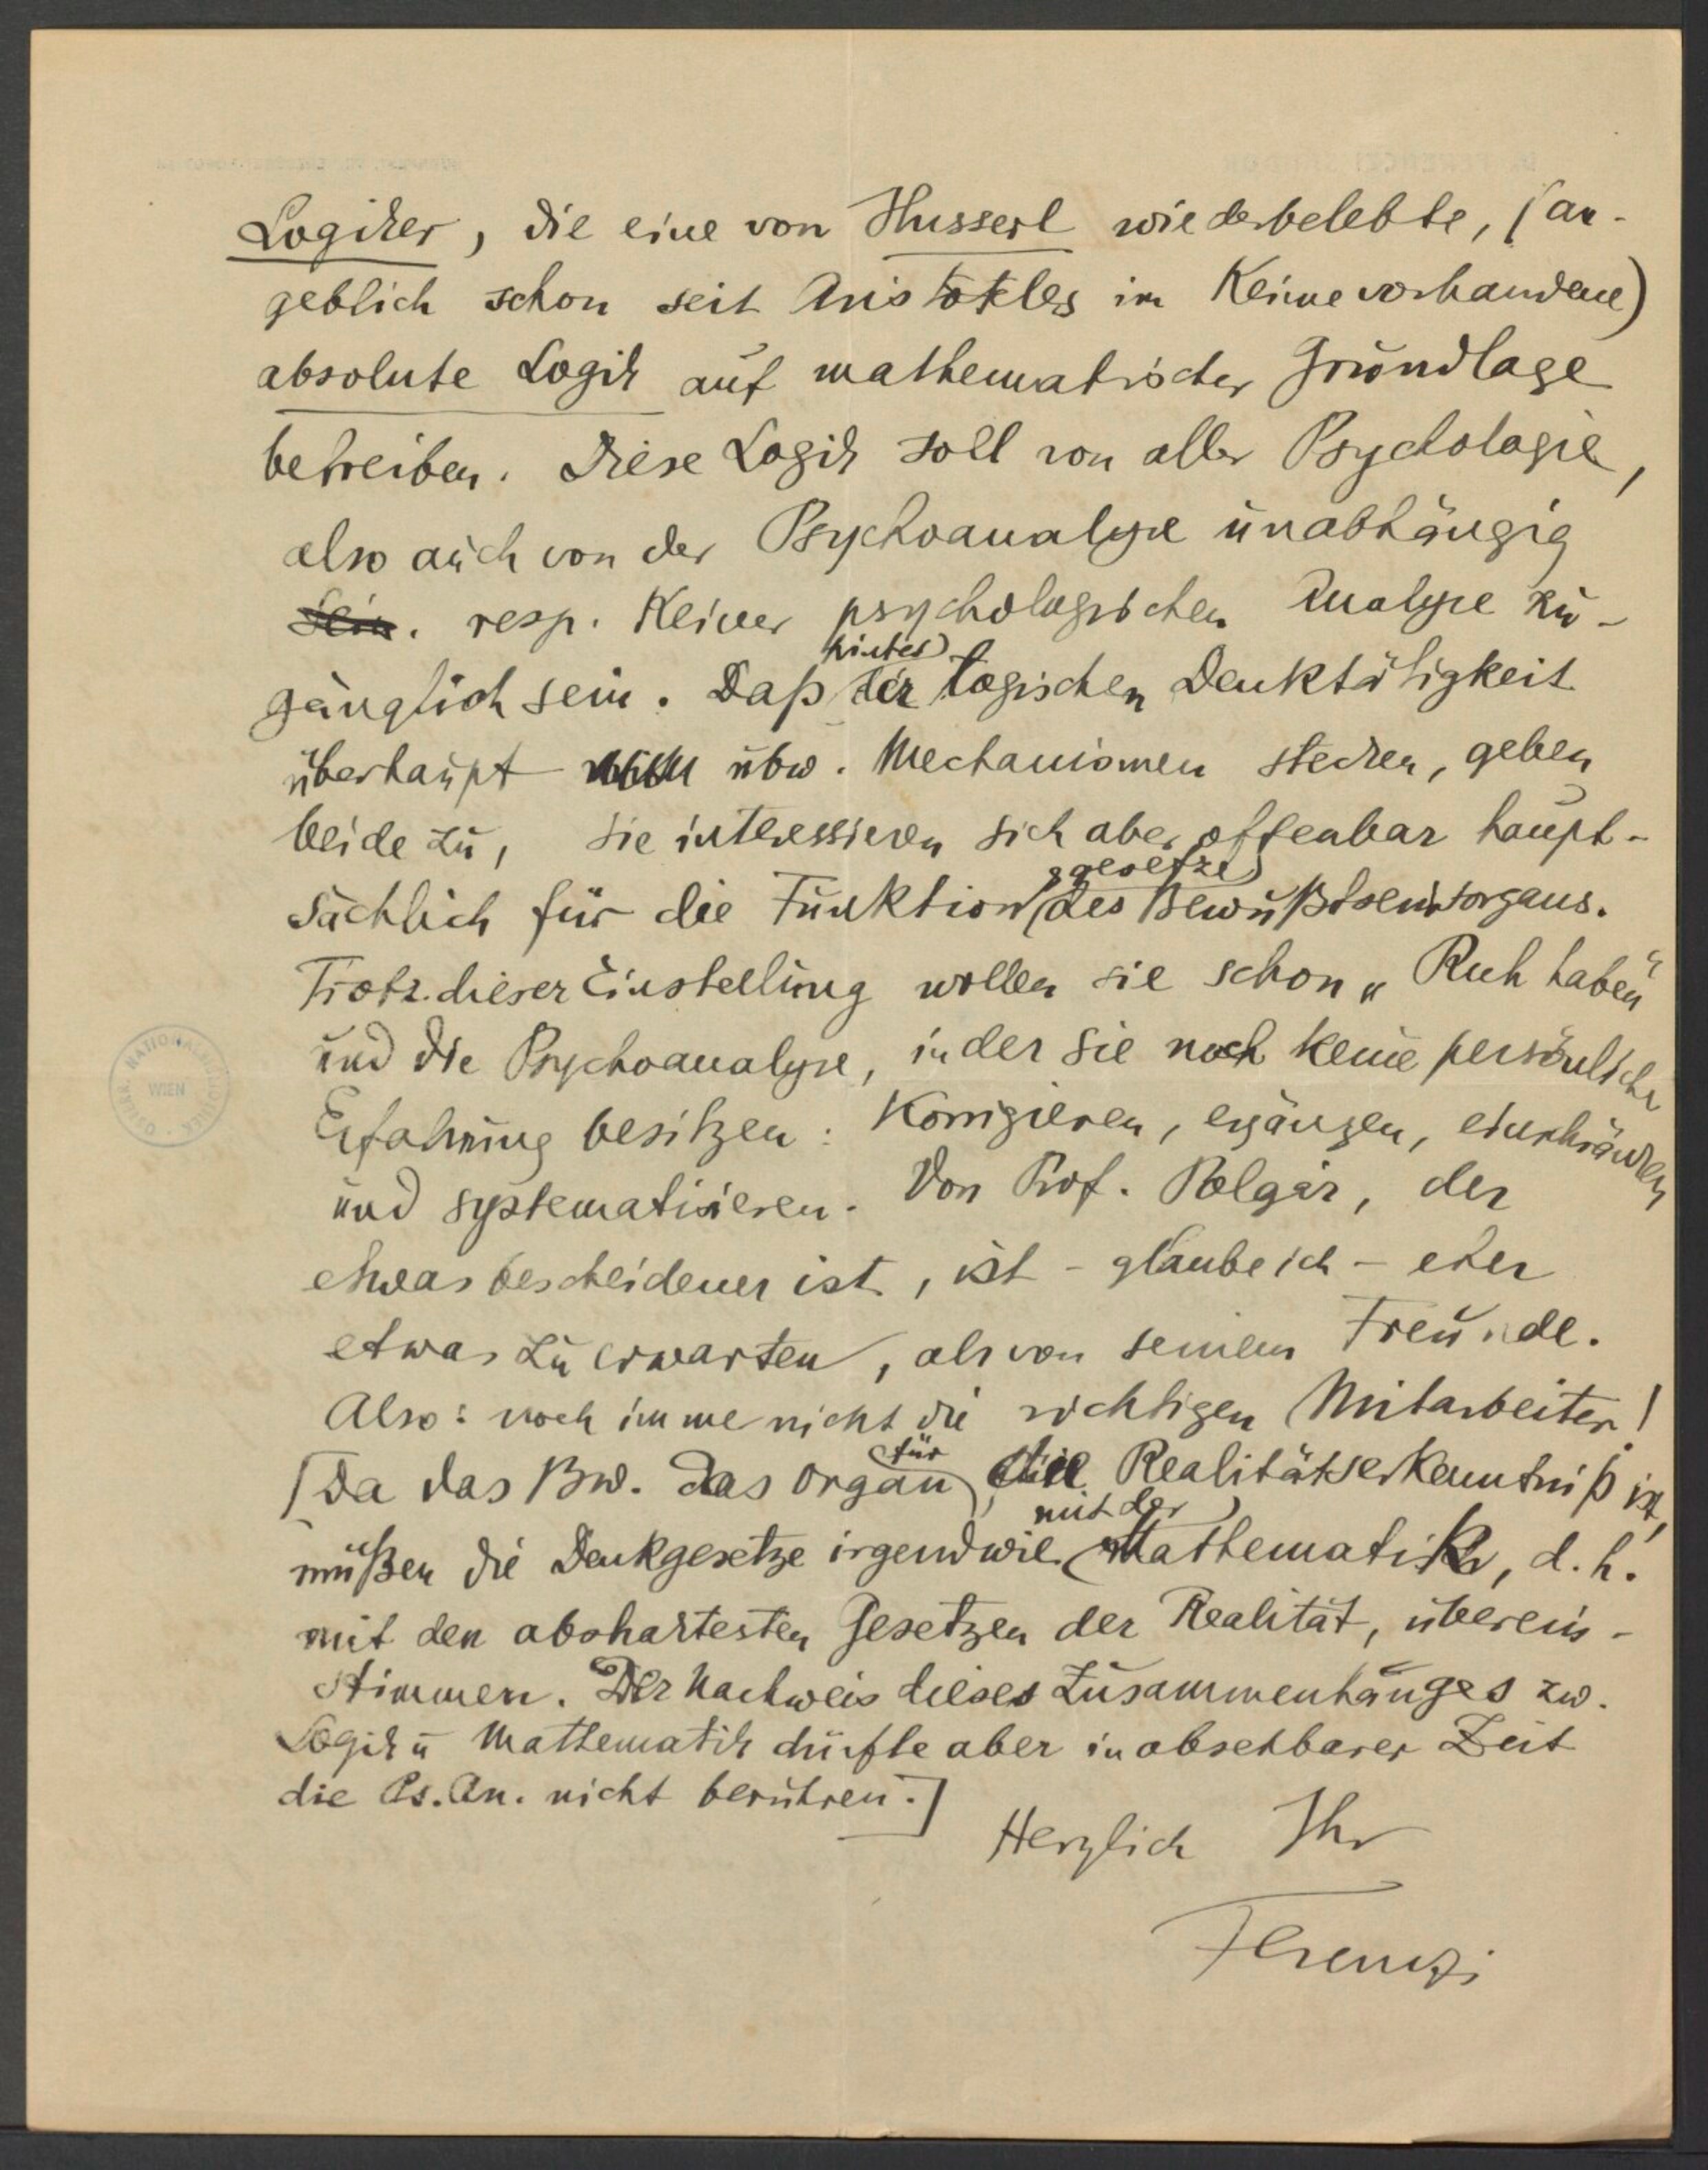 Logiker, die eine von Husserl wiederbelebte, (an-
geblich schon seit Aristoteles im Keime vorhandene)
absolute Logik auf mathematischer Grundlage
betreiben. Diese Logik soll von aller Psychologie,
also auch von der Psychoanalyse unabhängig
sein. resp. keiner psychologischen Analyse zu-
gänglich sein. Daß hinter der logischen Denktätigkeit
überhaupt ubw. Mechanismen stecken, geben
beide zu, sie interessieren sich aber offenbar haupt-
sächlich für die Funktionsgesetze des Bewußtseinsorgans.
Trotz dieser Einstellung wollen sie schon „Ruh haben“
und die Psychoanalyse, in der sie noch keine persönliche
Erfahrung besitzen: Korrigieren, ergänzen, einschränken
und systematisieren. Von Prof. Polgár, der
etwas bescheidener ist, ist – glaube ich – eher
etwas zu erwarten, als von seinem Freunde.
Also: noch imme nicht die richtigen Mitarbeiter!
[Da das Bw. das Organ für die Realitätserkenntniß ist,
müßen die Denkgesetze irgendwie mit der Mathematik, d.h.
mit den abstraktesten Gesetzen der Realität, überein-
stimmen. Der Nachweis dieses Zusammenhanges zw.
Logik u Mathematik dürfte aber in absehbarer Zeit
die Ps.An. nicht berühren.]
Herzlich Ihr
Ferenczi
WIEN